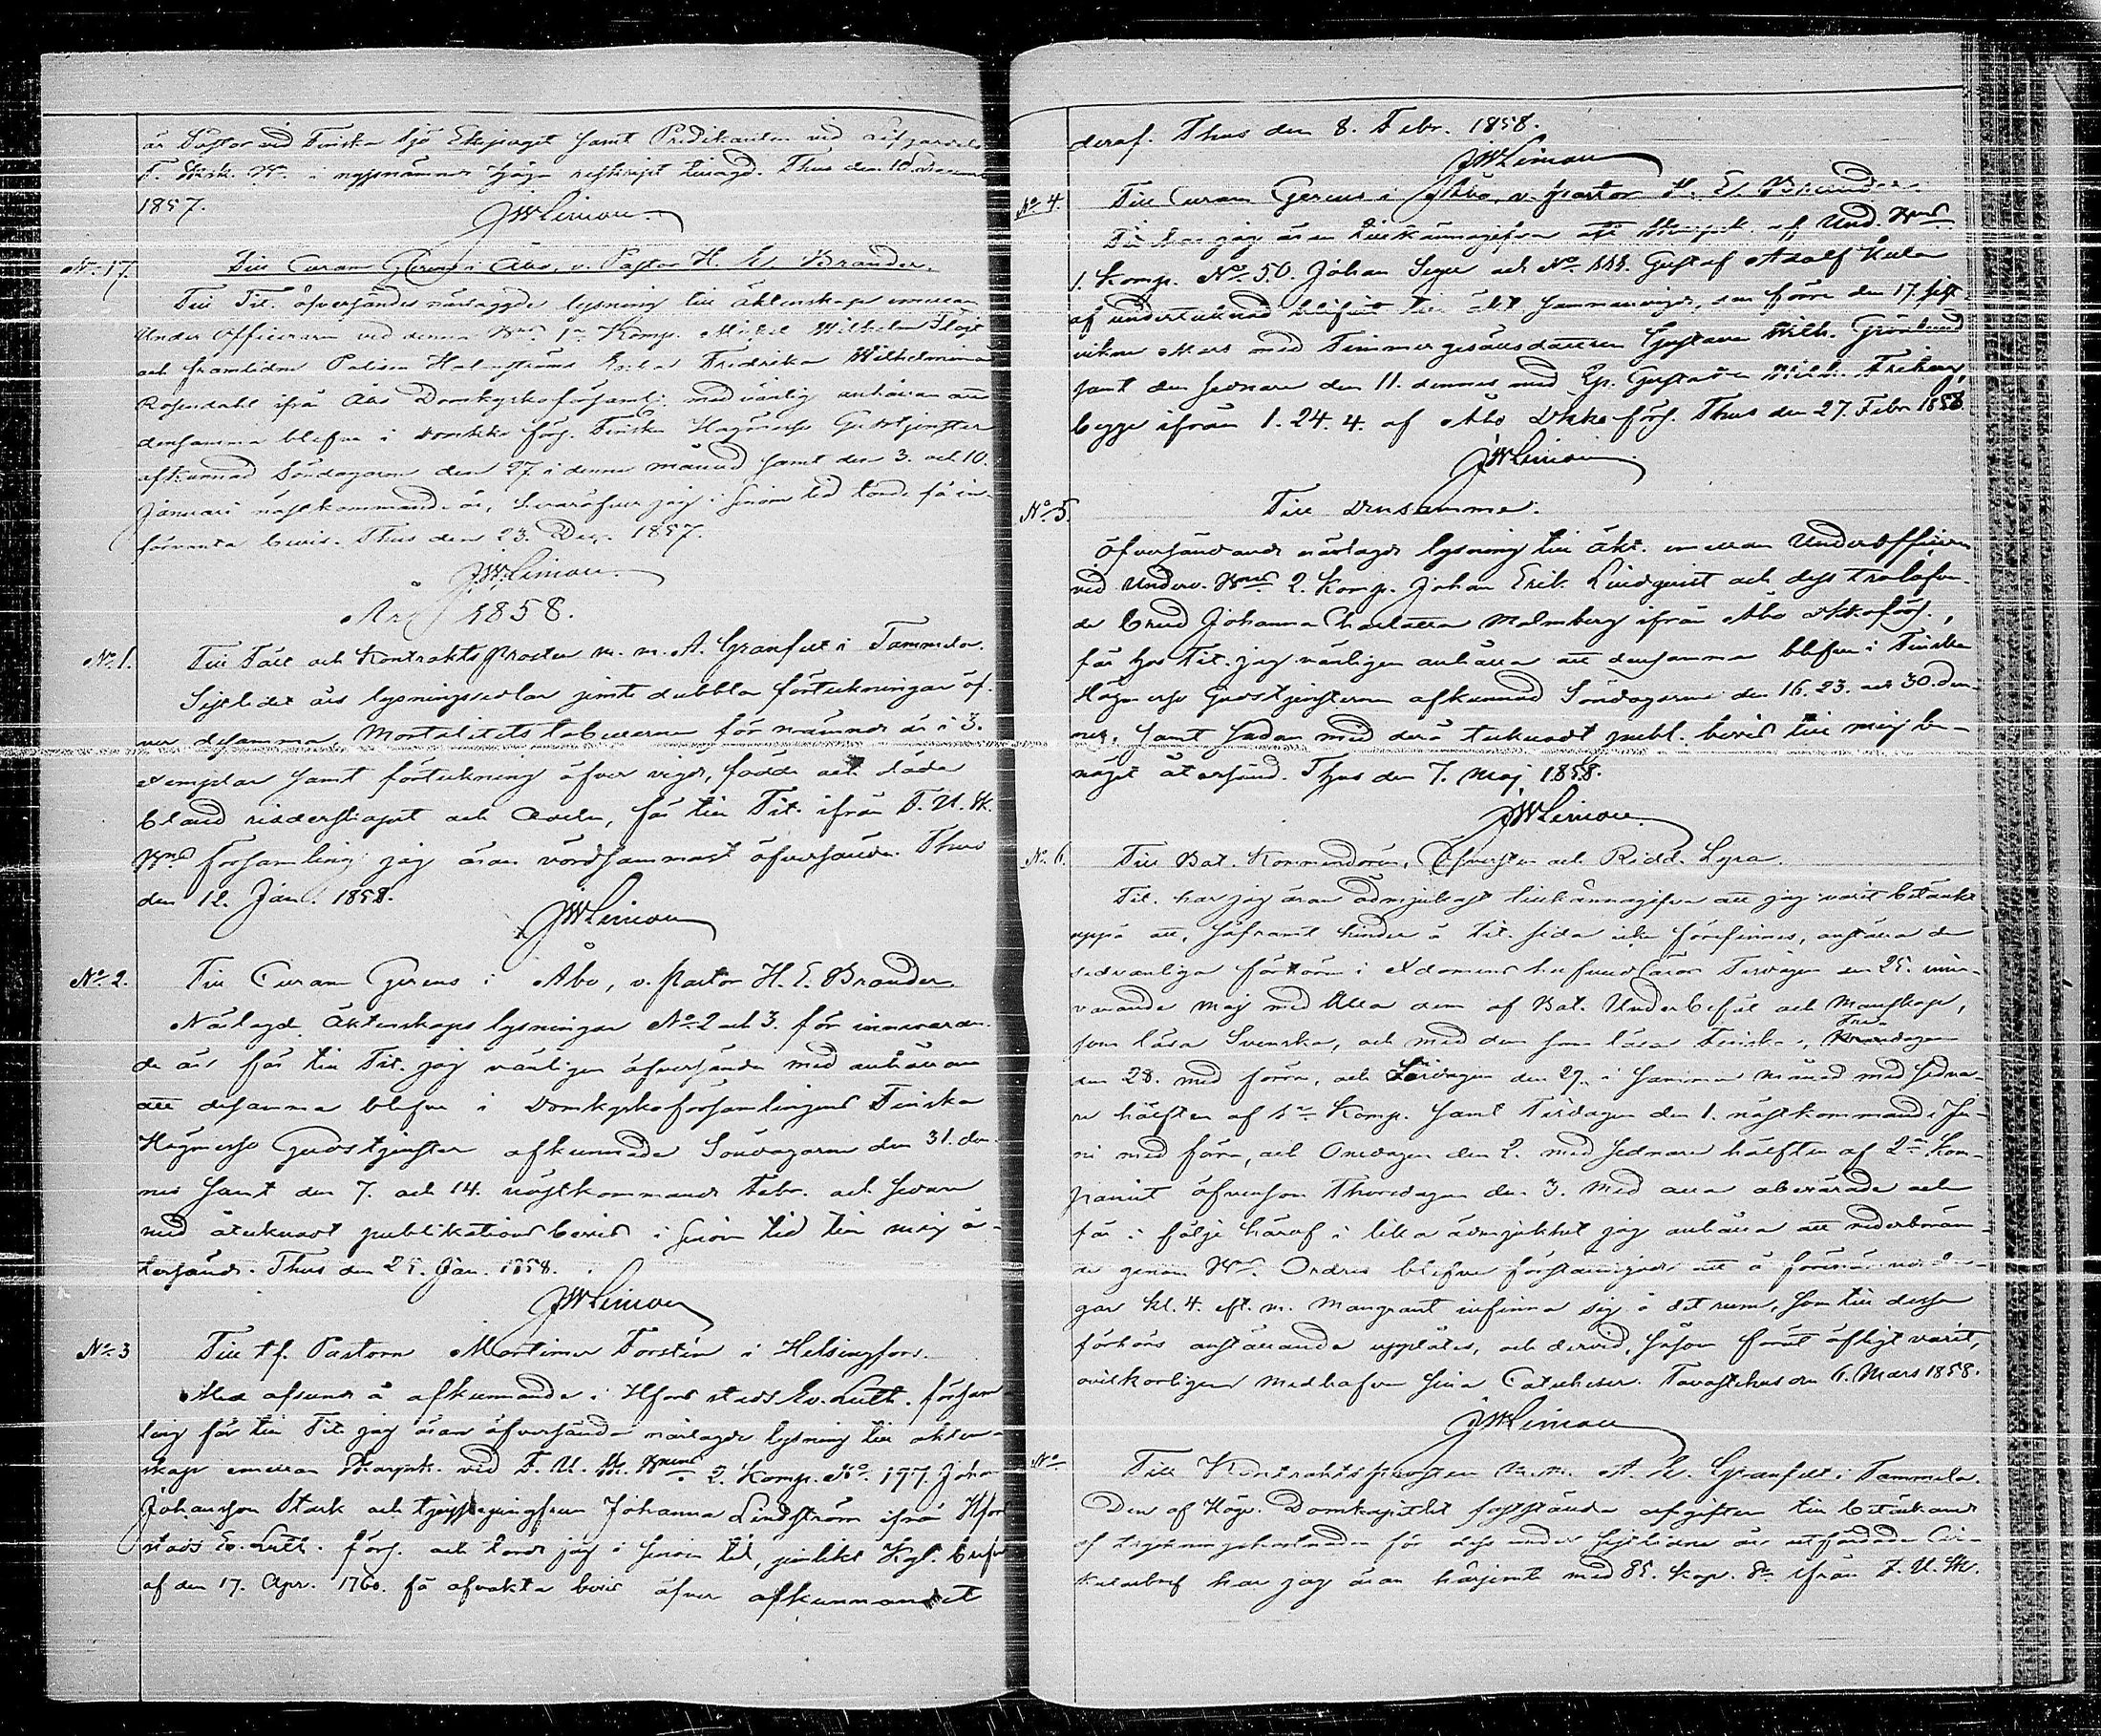 är Pastor vid Finska Sjö Ekipaget samt Predikanten vid
F. Sksk. Bn i nyssnämnde höga reskript tillagd. Thus den 10 December
1857.
JWLiman
No 17. Till Curam Gerens i Åbo, v. Pastor H. E. Brander.
Till Tit. öfversändes närlagde lysning till äktenskap emellan
Under Officeraren vid denna Bns 1a Komp. Mickel Wilhelm Flöjt
och framlidne Polisen Holmströms Enka Fredrika Wilhelmina
Rosendahl ifrån Åbo Domkyrkoförsaml. med vänlig anhållan att
densamma blefve i domkko förs. Finska Högmesso Gudstjenster
afkunnad Söndagarne den 27 i denna månad samt den 3. och 10.
Januari nästkommande år, hvaröfver jag i sinom tid torde få in-
förvänta bevis. Thus den 23. Dec. 1857.
JWLiman.
År 1858.
No 1. Till Fält och Kontrakts Prosten m. m. A. Granfelt i Tammela.
Sistledet års lysningssedlar jemte dubbla förteckningar öf-
ver desamma, Mortalitets tabellerne för nämnde år i 3.
exemplar samt förteckning öfver vigde, födde och döde
bland ridderskapet och Adeln, får till Tit. ifrån F. U. Sk.
Bns församling jag äran vördsammast öfversända. Thus
den 12. Jan. 1858.
JWLiman
No 2. Till Curam Gerens i Åbo, v. Pastor H. E. Brander.
Närlagde Äktenskaps lysningar No 2 och 3. för innevaran-
de år får till Tit. jag vänligen öfversända med anhållan
att desamma blefve i Domkyrkoförsamlingens Finska
Högmesso Gudstjenster afkunnade Söndagarne den 31. den-
nes samt den 7. och 14. nästkommande Febr. och sedan
med åtecknadt publikations bevis i sinom tid till mig å-
tersände. Thus den 25. Jan. 1858.
JWLiman
No 3 Till tf. Pastorn Mortimer Forstén i Helsingfors.
Med afseende å afkunnande i Hfors stads Ev. Luth. försam
ling får till Tit. jag äran öfversända närlagde lysning till äkten-
skap emellan Skarpsk. vid F. U. Sk. Bns 2. Komp. No 177. Johan
Johansson Stark och tjenstepigan Johanna Lindström ifrån Hfors
stads Ev. Luth. förs. och torde jag i sinom tid, jemlikt Kgl. bref
af den 17. Apr. 1760. få afvakta bevis öfver afkunnandet
deraf. Thus den 8. Febr. 1858.
JWLiman
No 4. Till Curam Gerens i Åbo, v. Pastor H. E. Brander.
Tit. har jag äran tillkännagifva att Skarpsk. af Und. Bns
1. Komp. No 50. Johan Seger och No 111. Gustaf Adolf Kula
af undertecknad blifvit till äkt. sammanvigde, den förre den 17. sist-
vikne Mars med Timmergesällsdottren Gustava Wilh. Grönlund
samt den sednare den 11. dennes med Ep. Gustava Wilh. Friberg,
begge ifrån 1. 24. 4. af Åbo Dkko förs. Thus den 27. Febr. 1858.
JWLiman
No 5. Till densamme.
öfversändande närlagde lysning till äkt. emellan Underofficern
vid Underv. Bns 2. Komp. Johan Erik Lindqvist och dess trolofva-
de brud Johanna Charlotta Malmberg ifrån Åbo dkkoförs.,
får hos Tit. jag vänligen anhålla att densamma blefve i Finska
Högmesso Gudstjensterna afkunnad Söndagarne den 16. 23. och 30. den-
nes, samt sedan med derå tecknadt publ. bevis till mig be-
näget återsänd. Thus den 7. Maj 1858.
JWLiman.
No 6. Till Bat. Kommendören, Öfversten och Ridd. Lyra.
Tit. har jag äran ödmjukast tillkännagifva att jag varit betänkt
uppå att, såframt hinder å Tit. sida icke förefinnes, anställa de
sedvanliga förhören i Kristendomens hufvudläror Tisdagen den 25. inne-
varande Maj med Alla dem af Bat. Underbefäl och Manskap,
som läsa Svenska, och med dem som läsa Finska, Fredagen
den 28. med förra, och Lördagen den 29. i samma månad med sedna-
re hälften af 1a Komp. samt Tisdagen den 1. nästkommande Ju-
ni med förra, och Onsdagen den 2. med sednare hälften af 2a Kom-
paniet äfvensom Thorsdagen den 3. med alla oberörde och
får i följe häraf i lika ödmjukhet jag anhålla att vederböran-
de genom Bns Ordres blefve förständigade att å förenämnde da-
gar kl. 4. eft. m. mangrant infinna sig å det rum, som till dessa
förhörs anställande upplåtes, och dervid, såsom förut öfligt varit,
ovilkorligen medhafva sina Catecheser. Tavastehus den 6. Mars 1858.
JWLiman
No Till Kontraktsprosten m.m. A. E. Granfelt i Tammela.
Den af Högv. Domkapitlet fastställda afgiften till betäckande
af tryckningskostnaden för dess under sistlidne år utfärdade Cir-
kulärbref har jag äran härjemte med 85. kop. Sr ifrån F. U. Sk.